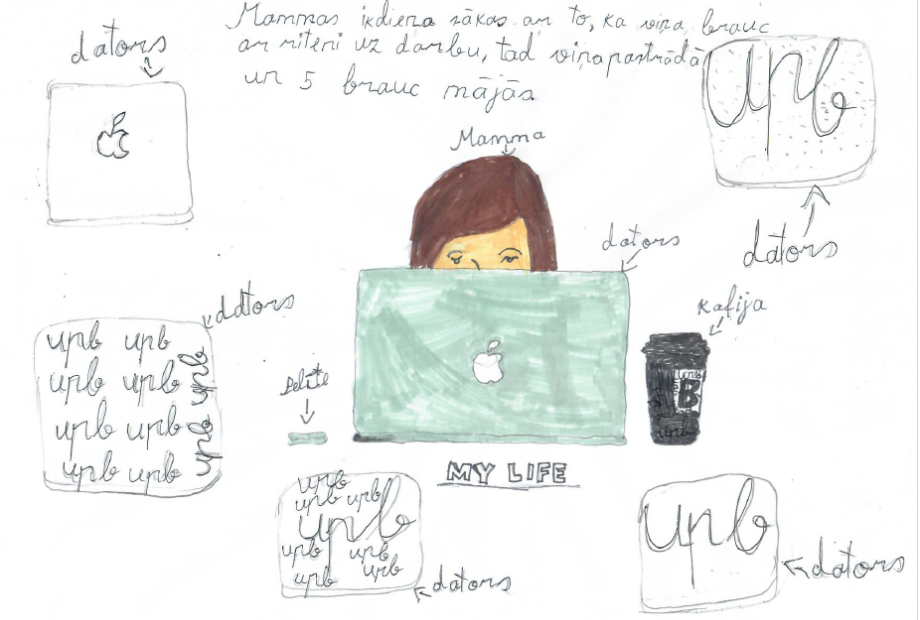 Mammas ikdiena sākas ar to, ka viņa brauc
ar riteni uz darbu, tad viņa pastrādā
un 5 brauc mājās
dators
upb
Mamma
dators
dators
kafija
dators
upb upb
upb upb
upb upb
upb upb
upb
upb
Pelīte
B
upb
MY LIFE
upb
upb upb
upb
upb upb
upb upb
dators
upb
dators